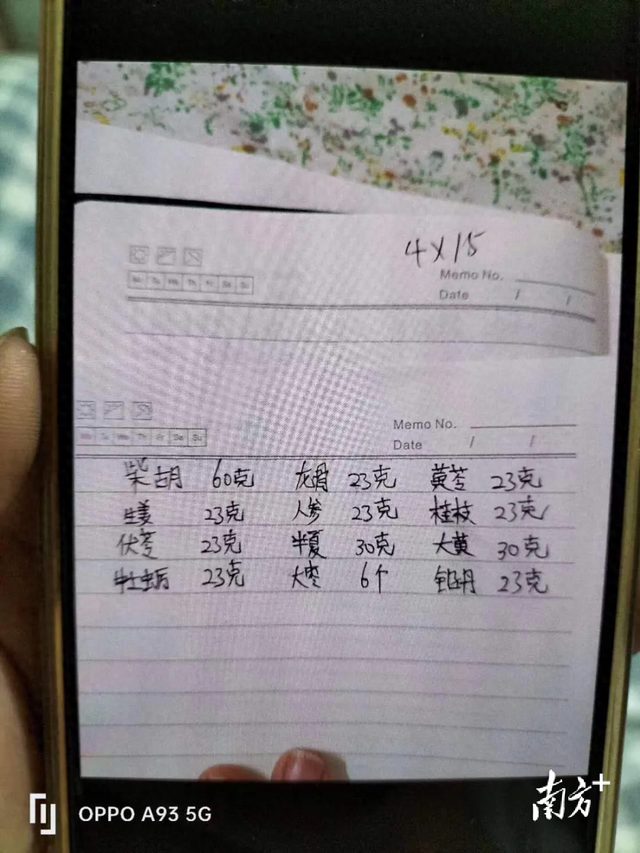 4×15
Memo No.
Mo Tu We Th Fr Sa Su
Date / /
Memo No.
Mo Tu We Th Fr Sa Su
Date / /
柴胡 60克 龙骨 23克 黄芩 23克
生姜 23克 人参 23克 桂枝 23克
伏苓 23克 半夏 30克 大黄 30克
牡蛎 23克 大枣 6个 铅丹 23克
OPPO A93 5G
南方+